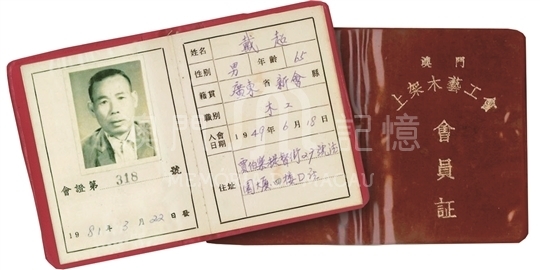 會證第 318 號
1981年3月22日發
姓名 戴超
性別 男 年齡 65
籍貫 廣東省 新會 縣
職別 木工
入會日期 1949年6月18日
住址
澳門
上架木藝工會
會員証